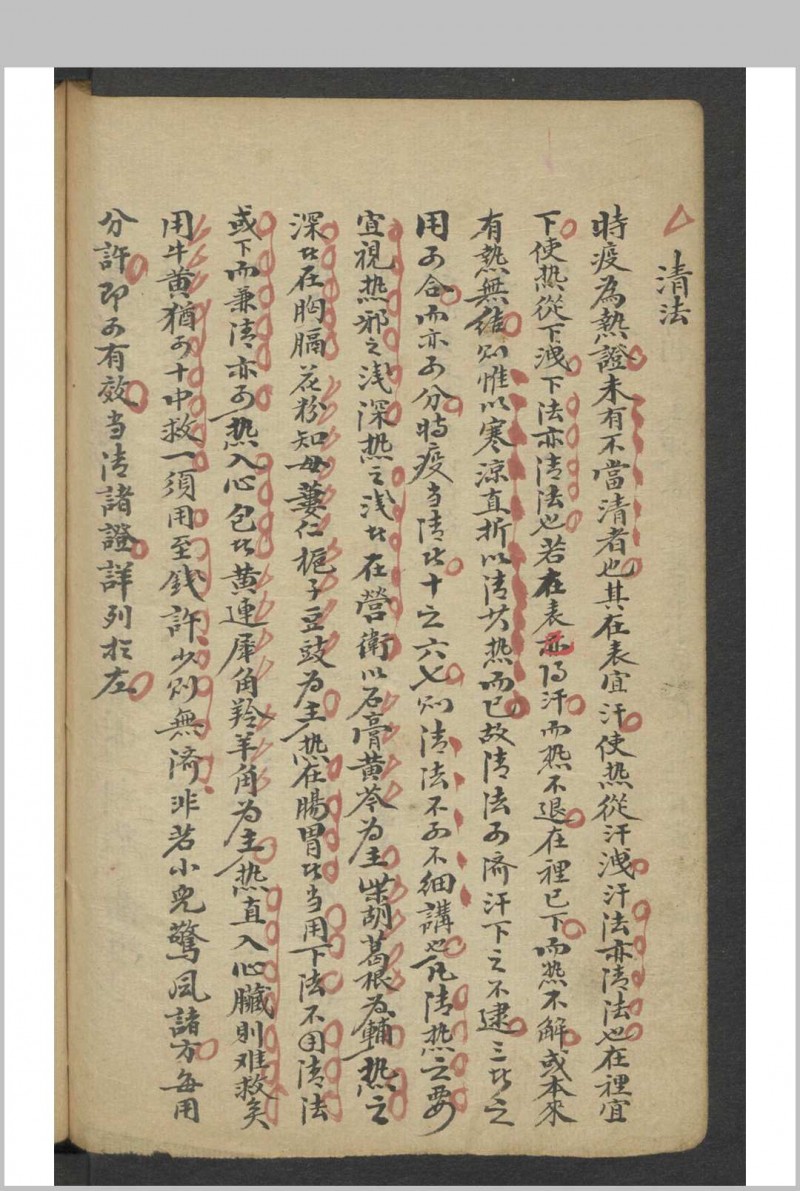 清法
時疫為熱證未有不當清者也其在表宜汗使热從汗洩汗法亦清法也在裡宜
下使热從下洩下法亦清法也若在表已得汗而热不退在裡已下而热不解或本來
有热無結则惟以寒凉直折以清其热而已故清法可济汗下之不逮三者之
用可合而亦可分時疫当清者十之六七则清法不可不細講也凡清热之要
宜視热邪之浅深热之浅者在營衛以石膏黄芩為主柴胡葛根為輔热之
深者在胸膈花粉知母蔞仁梔子豆豉為主热在腸胃者当用下法不用清法
或下而兼清亦可热入心包者黄連犀角羚羊角為主热直入心臟則难救矣
用牛黄猶可十中救一須用至錢許少则無济非若小兒驚风諸方每用
分許即可有效当清諸證詳列於左